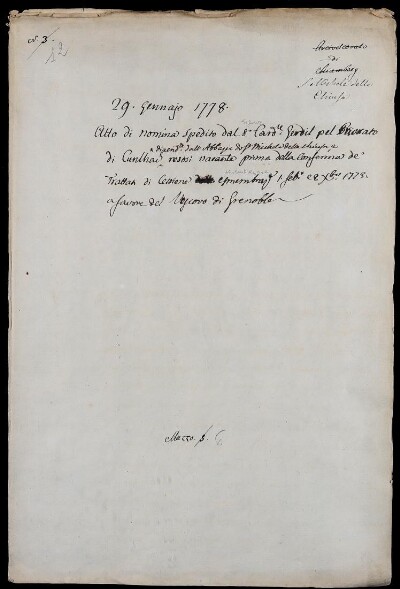 n.° 3.
12
Arcivescovato
di
Chiamberÿ
S. Michele della
Chiusa
29. Gennajo 1778.
Atto di nomina spedito dal S.r Card.le Gerdil pel Priorato
dipend.te dall'Abbazia di S.t Michele della Chiusa, e
di restosi vacante prima della conferma de'
Trattati di Cessione e smembraz.e 1. feb.o e 28 Xbre 1778.
a favore del Vescovo di Grenoble
Mazzo 6